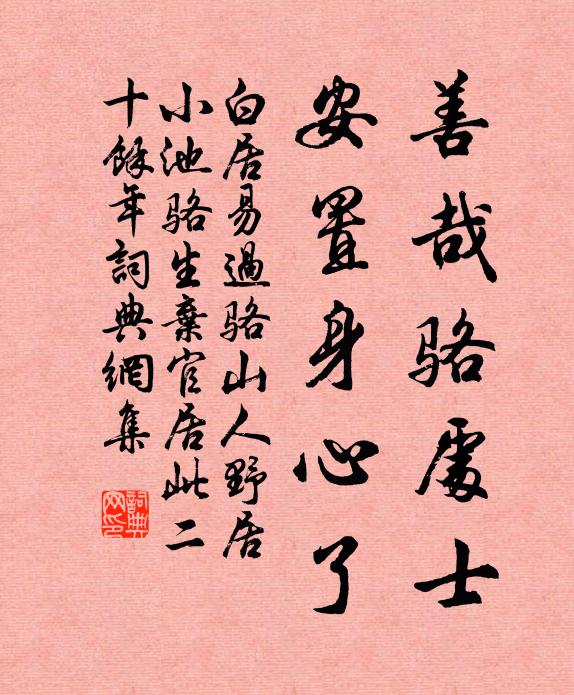 善哉骆處士
安置身心了
白居易過骆山人野居
小池骆生棄官居此二
十餘年詞典網集
詞典
网印